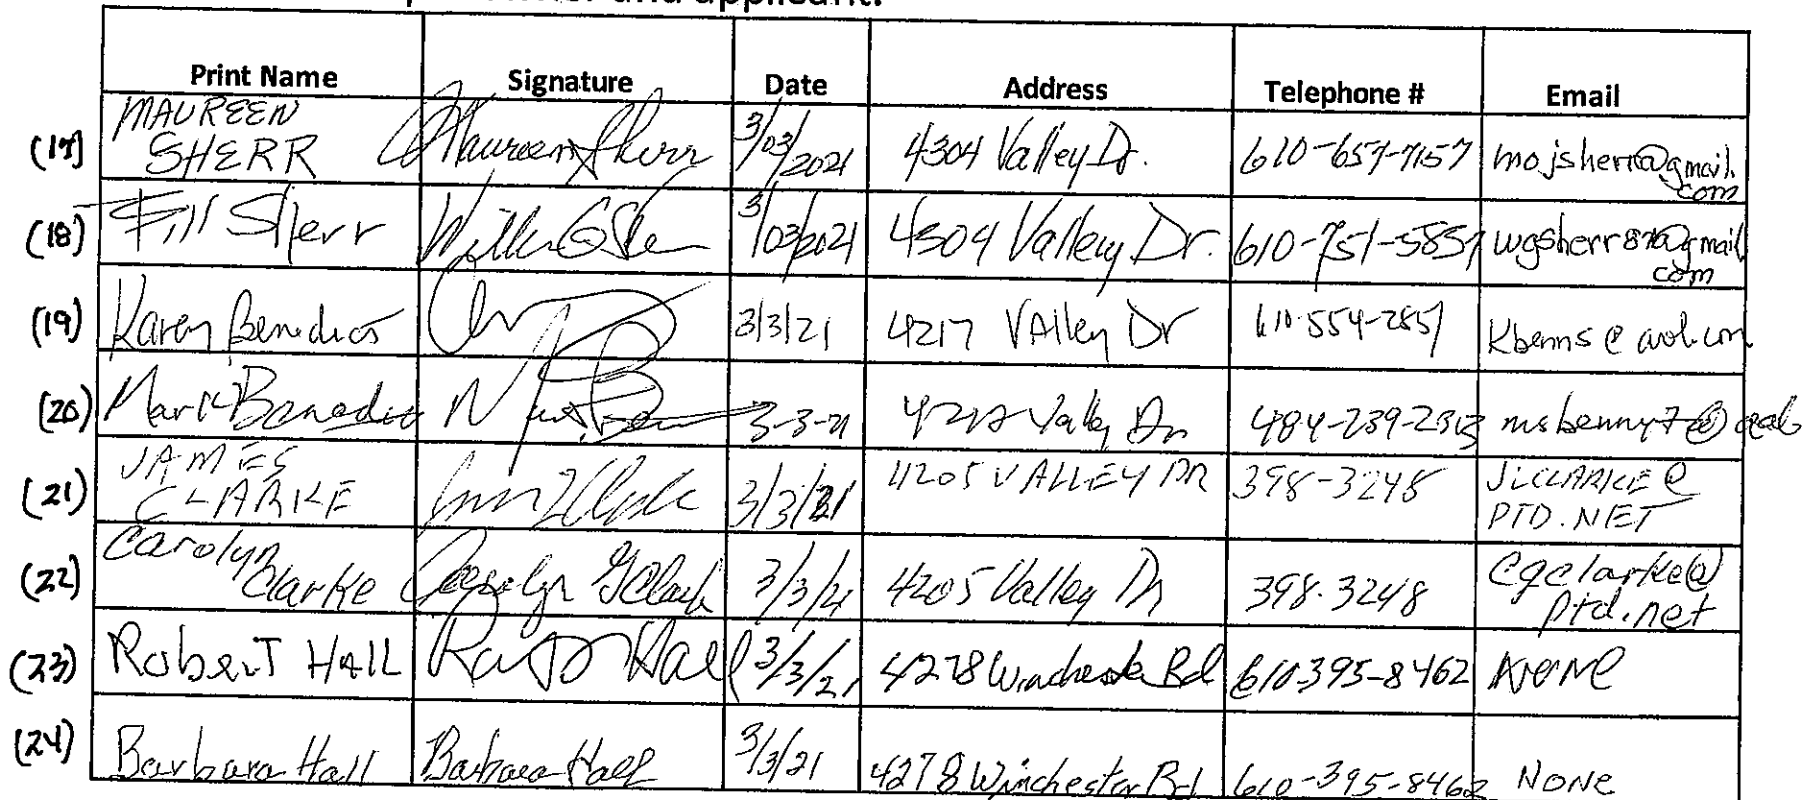 and applicant.
Print Name Signature Date Address Telephone # Email
(17) MAUREEN SHERR Maureen Sherr 3/03/2021 4304 Valley Dr. 610-657-7157 mojsherr@gmail.com
(18) Bill Sherr 3/03/2021 4304 Valley Dr. 610-751-5857 wgsherr87@gmail.com
(19) Karen Benedict 3/3/21 4217 VAlley Dr 610-554-2857 Kbenns@aol.com
(20) Mark Benedict 3-3-21 4217 Valley Dr 484-239-2313 msbenny7@aol
(21) JAMES CLARKE 3/3/21 4205 VALLEY DR 398-3248 JLCLARKE@PTD.NET
(22) Carolyn Clarke Carolyn G Clark 3/3/21 4205 Valley Dr 398.3248 cgclarke@ptd.net
(23) RoberT HALL Hall 3/3/21 4278 Winchester Rd 610-395-8462 NONE
(24) Barbara Hall Barbara Hall 3/3/21 4278 Winchester Rd 610-395-8462 NONE